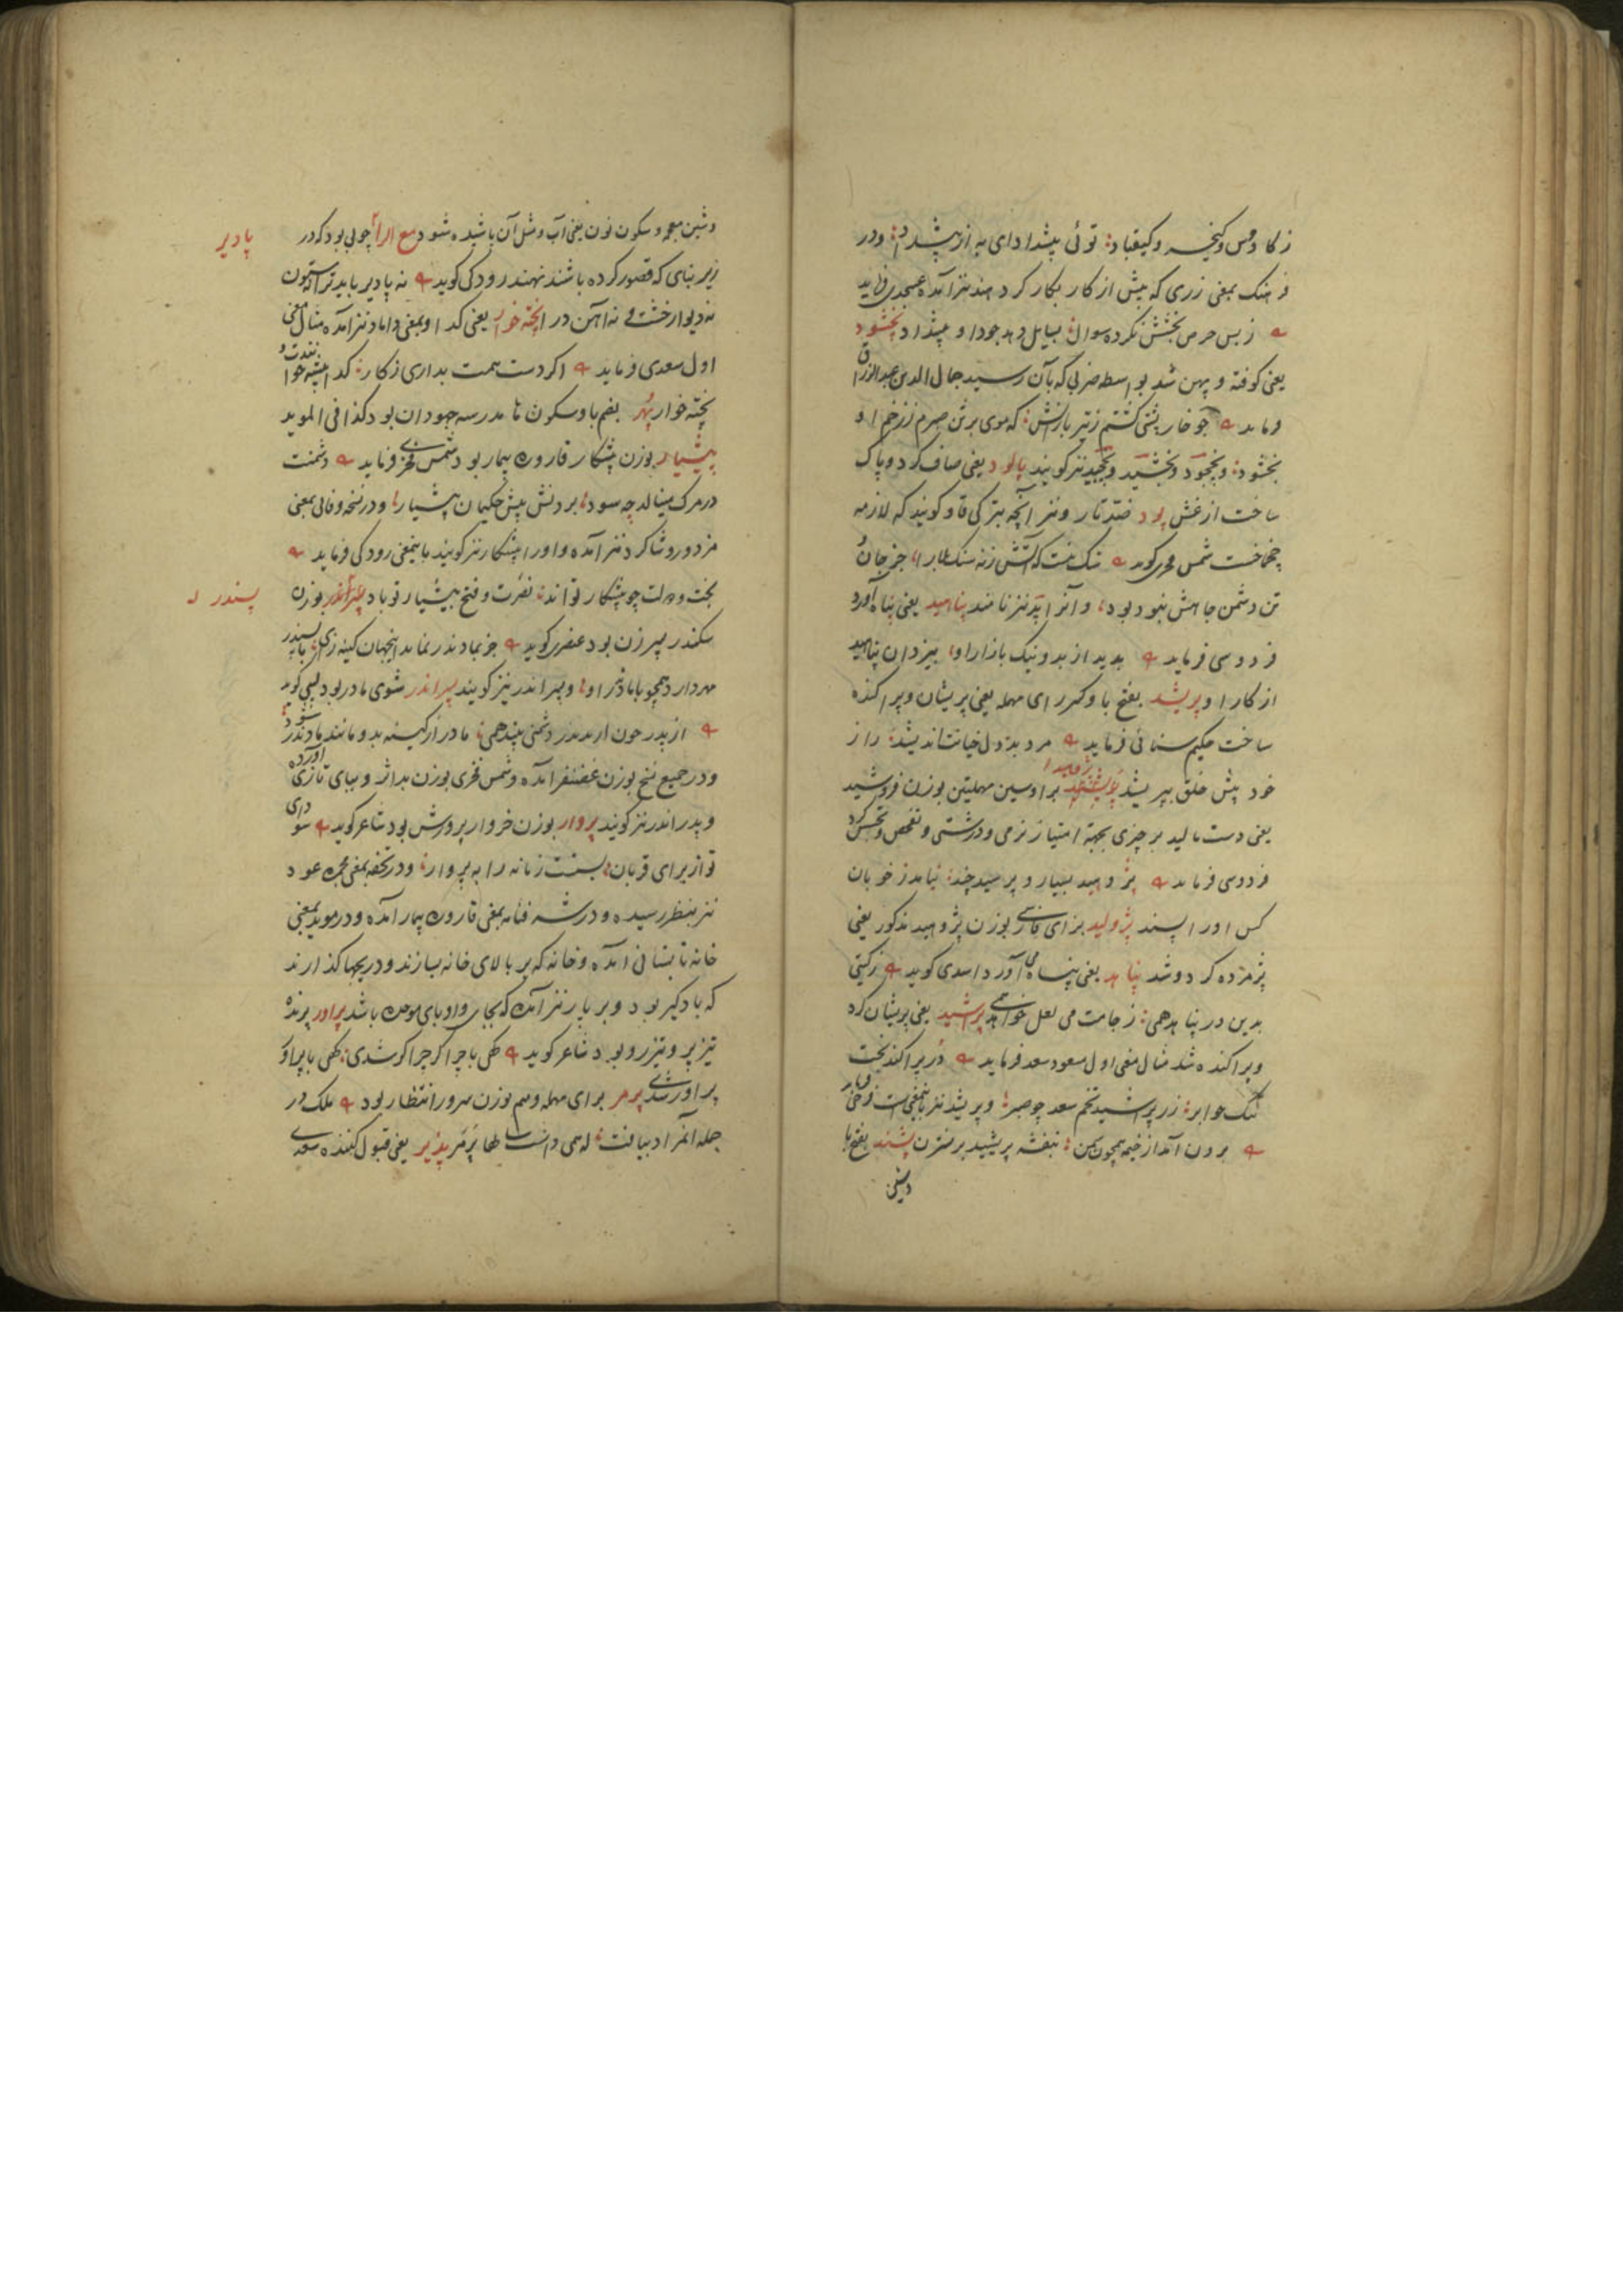 ز کاوس و کیخسرو و کیقباد توئی پیشدادای به از پیشداد و در
فرهنک بمعنی زری که پیش از کار بکار کر دهند نیز آمده عسجدی فرماید
ز بس حرص بخشش نکرده سوال بسایل دهد جود او پیشداد پخشود
یعنی کوفته و پهن شد بواسطه ضربی که بآن رسید جمال الدین عبدالرزاق
فرماید چو خار پشتی کشتم ز تیر بارانش که موی بر تن صبرم ز زخم او
بخشود و پخچود و پخشید و پخچید نیز کویند پالود یعنی صاف کرد و پاک
ساخت از غش پود ضد تار و نیز آنچه بترکی قاو کویند که لازمه
چخماخست شمس فخری کوید
تن دشمن جاهش نبود پود و آنرا پد نیز نامند پناهید یعنی پناه آورد
فردوسی فرماید بدید از بد و نیک بازار او بیزدان پناهید
از کار او پریشد بفتح با و کسر رای مهمله یعنی پریشان و پراکنده
ساخت حکیم سنائی فرماید مرد بددل خیانت اندیشد راز
خود پیش خلق بپریشد برا و سین مهملتین بوزن فروشید
یعنی دست مالید بر چیزی بجهة امتیاز نرمی و درشتی و تفحص و تجسس کرد
فردوسی فرماید پژوهید بسیار و پرسید چند نیامد ز خوبان
کس او را پسند پژولید بزای فارسی بوزن پژوهید مذکور یعنی
پژمرده کرد و شد پناهد یعنی پناه می آورد اسدی کوید ز کیتی
بدین در پناهد همی ز جامت می لعل خواهد همی پراشید یعنی پریشان کرد
و پراکنده شد مثال معنی اول مسعود سعد فرماید
زر پراشید و پریشد نیز باینمعنی است فرخی فرماید
برون آمد از خیمه همچون بنفشه پریشید بر نسترن پشند بفتح با
وشین
وشین معجمه و سکون نون یعنی آب و مثل آن پاشیده شود مع الراء چوبی بود که در
پادیر
زیر بنای که قصور کرده باشد نهند رودکی کوید نه پادیر باید ترا نه ستون
نه دیوار خشت و نه آهن درا پخته خوار یعنی کدا و بمعنی داماد نیز آمده مثال معنی
اول سعدی فرماید اکر دست همت بداری ز کار کدا پیشه خوانندت و
پخته خوار پهر بضم با و سکون ها مدرسه جهودان بود کذا فی الموید
پیشیار بوزن پیشکار قاروره بیمار بود شمس فخری فرماید دشمنت
در مرک مینالد چه سود بردنش پیش حکیمان پیشیار و در نسخه وفائی بمعنی
مزدور و شاکرد نیز آمده و او را پیشکار نیز کویند باینمعنی رودکی فرماید
بخت و دولت چو پیشکار تواند نصرت و فتح پیشیار تو باد بوزن
پسندر
سکندر پسر زن بود عنصری کوید جز بمادندر نماند اینجهان کینه زی با پسندر
مهر دارد همچو با مادندرا و پسراندر نیز کویند پدراندر شوی مادر بود لبیبی کوید
از پدر چون از پدندر دشمنی بیند همی مادر از کینه بدو مانند مادندر شود
و در جمیع نسخ بوزن غضنفر آمده و شمس فخری بوزن بداثر و ببای تازی آورده
و پدراندر نیز کویند پروار بوزن خروار پرورش بود شاعر کوید
تو از برای قربان ببست زمانه را به پروار و در تحفه بمعنی مجمره عود
نیز بنظر رسیده و در شرفنامه بمعنی قاروره بیمار آمده و در موید بمعنی
خانه تابستانی آمده و خانه که بر بالای خانه بسازند و دریچها کذارند
که بادکیر بود و بربار نیز آمده که بجای واو بای موحده باشد پراور پرنده
تیزپر و تیزرو بود شاعر کوید کهی با چرا کر چرا کر شدی کهی با پراور
پراور شدی پرمر برای مهمله و میم بوزن سرور انتظار بود ملک در
جمله آنمراد بیافت پرمر پذیر یعنی قبول کننده سعدی